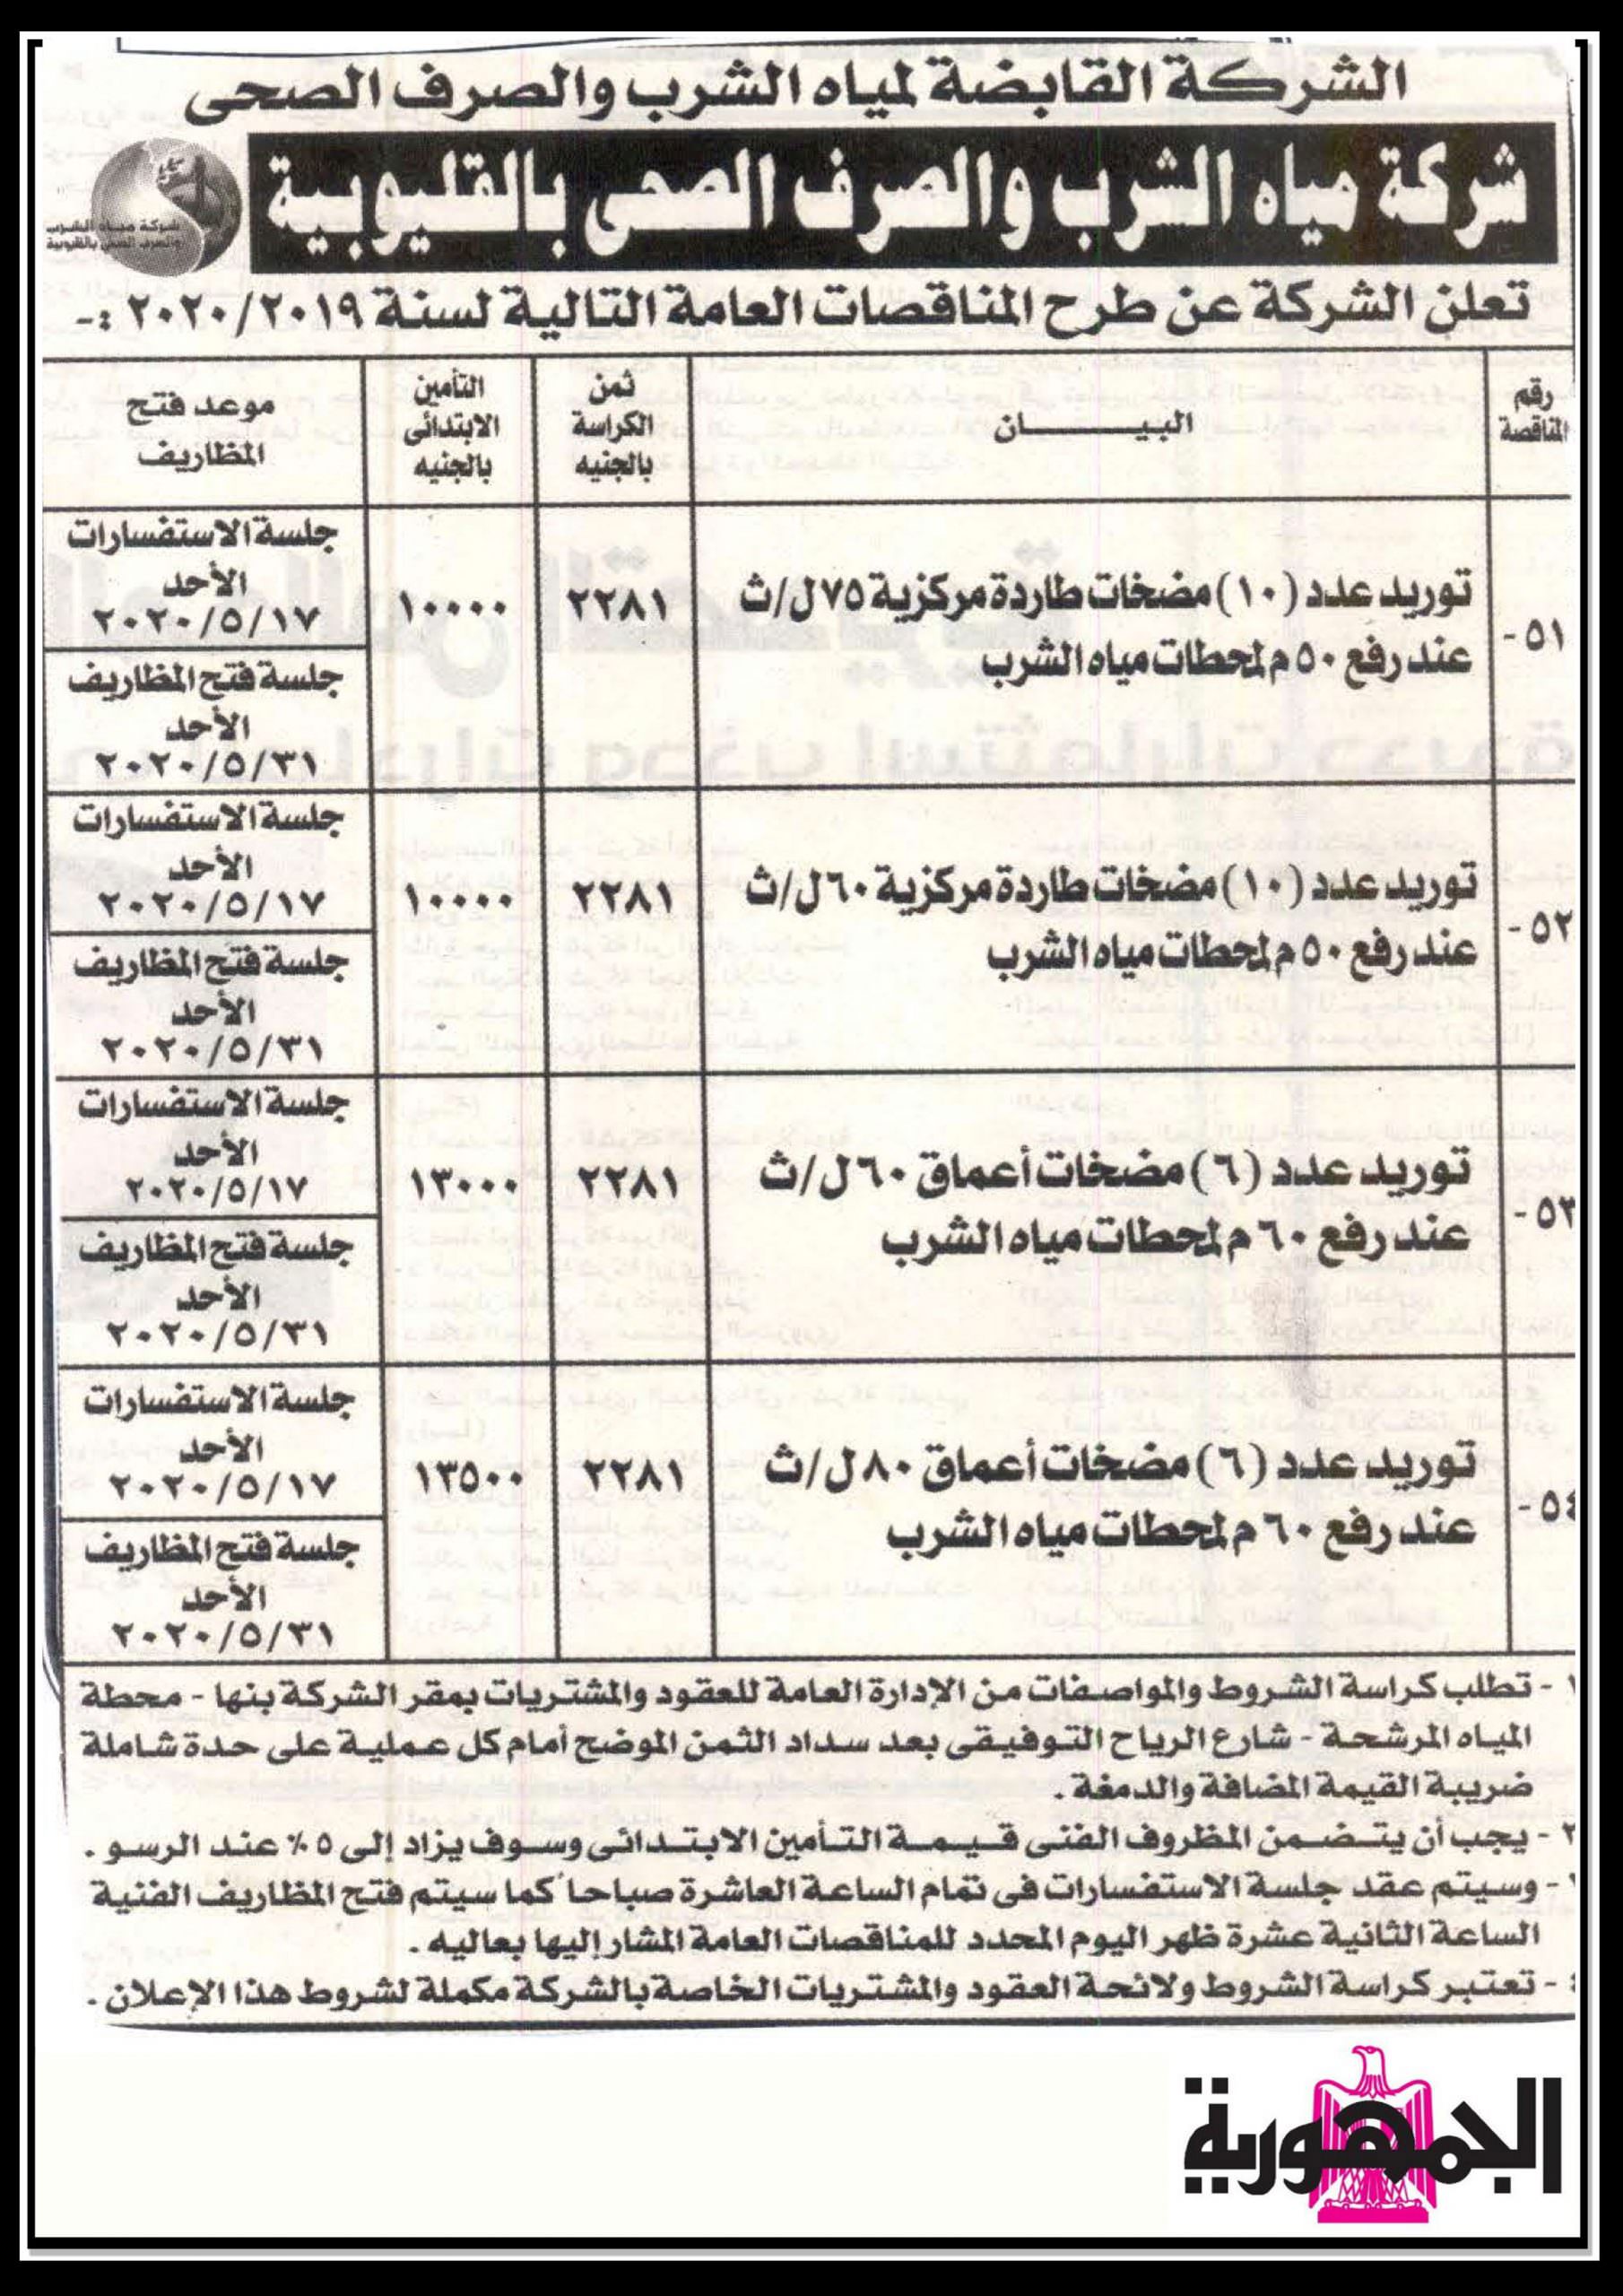 الشركة القابضة لمياه الشرب والصرف الصحى
شركة مياه الشرب والصرف الصحى بالقليوبية
شركة مياه الشرب
والصرف الصحى بالقليوبية
تعلن الشركة عن طرح المناقصات العامة التالية لسنة ٢٠٢٠/٢٠١٩ :-
رقم
المناقصة
البيــــــــان
ثمن
الكراسة
بالجنيه
التأمين
الابتدائى
بالجنيه
موعد فتح
المظاريف
٥١-
توريد عدد (١٠) مضخات طاردة مركزية ٧٥ ل/ث
عند رفع ٥٠ م لمحطات مياه الشرب
٢٢٨١
١٠٠٠٠
جلسة الاستفسارات
الأحد
٢٠٢٠/٥/١٧
جلسة فتح المظاريف
الأحد
٢٠٢٠/٥/٣١
٥٢-
توريد عدد (١٠) مضخات طاردة مركزية ٦٠ ل/ث
عند رفع ٥٠ م لمحطات مياه الشرب
٢٢٨١
١٠٠٠٠
جلسة الاستفسارات
الأحد
٢٠٢٠/٥/١٧
جلسة فتح المظاريف
الأحد
٢٠٢٠/٥/٣١
٥٣-
توريد عدد (٦) مضخات أعماق ٦٠ ل/ث
عند رفع ٦٠ م لمحطات مياه الشرب
٢٢٨١
١٣٠٠٠
جلسة الاستفسارات
الأحد
٢٠٢٠/٥/١٧
جلسة فتح المظاريف
الأحد
٢٠٢٠/٥/٣١
٥٤-
توريد عدد (٦) مضخات أعماق ٨٠ ل/ث
عند رفع ٦٠ م لمحطات مياه الشرب
٢٢٨١
١٣٥٠٠
جلسة الاستفسارات
الأحد
٢٠٢٠/٥/١٧
جلسة فتح المظاريف
الأحد
٢٠٢٠/٥/٣١
١ - تطلب كراسة الشروط والمواصفات من الإدارة العامة للعقود والمشتريات بمقر الشركة بنها - محطة
المياه المرشحة - شارع الرياح التوفيقى بعد سداد الثمن الموضح أمام كل عملية على حدة شاملة
ضريبة القيمة المضافة والدمغة .
٢ - يجب أن يتضمن المظروف الفنى قيمة التأمين الابتدائى وسوف يزاد إلى ٥ % عند الرسو .
٣ - وسيتم عقد جلسة الاستفسارات فى تمام الساعة العاشرة صباحا كما سيتم فتح المظاريف الفنية
الساعة الثانية عشرة ظهر اليوم المحدد للمناقصات العامة المشار إليها بعاليه .
٤ - تعتبر كراسة الشروط ولائحة العقود والمشتريات الخاصة بالشركة مكملة لشروط هذا الإعلان .
الجمهورية